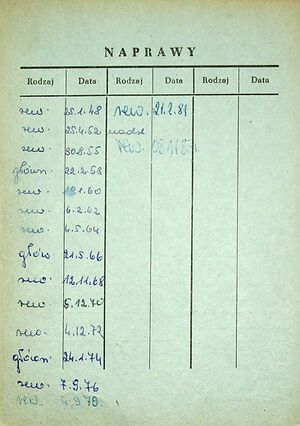 NAPRAWY
Rodzaj Data Rodzaj Data Rodzaj Data
rew. 25.1.48 rew. 21.2.81
rew. 25.4.52
rew. 30.8.55 rew.
główn. 22.2.58
rew. 1.60
rew 6.2.62
rew 4.5.64
główn. 21.5.66
rew 12.11.68
rew 5.12.70
rew 4.12.72
główn. 24.1.74
rew 7.9.76
rew. 4.9.79.